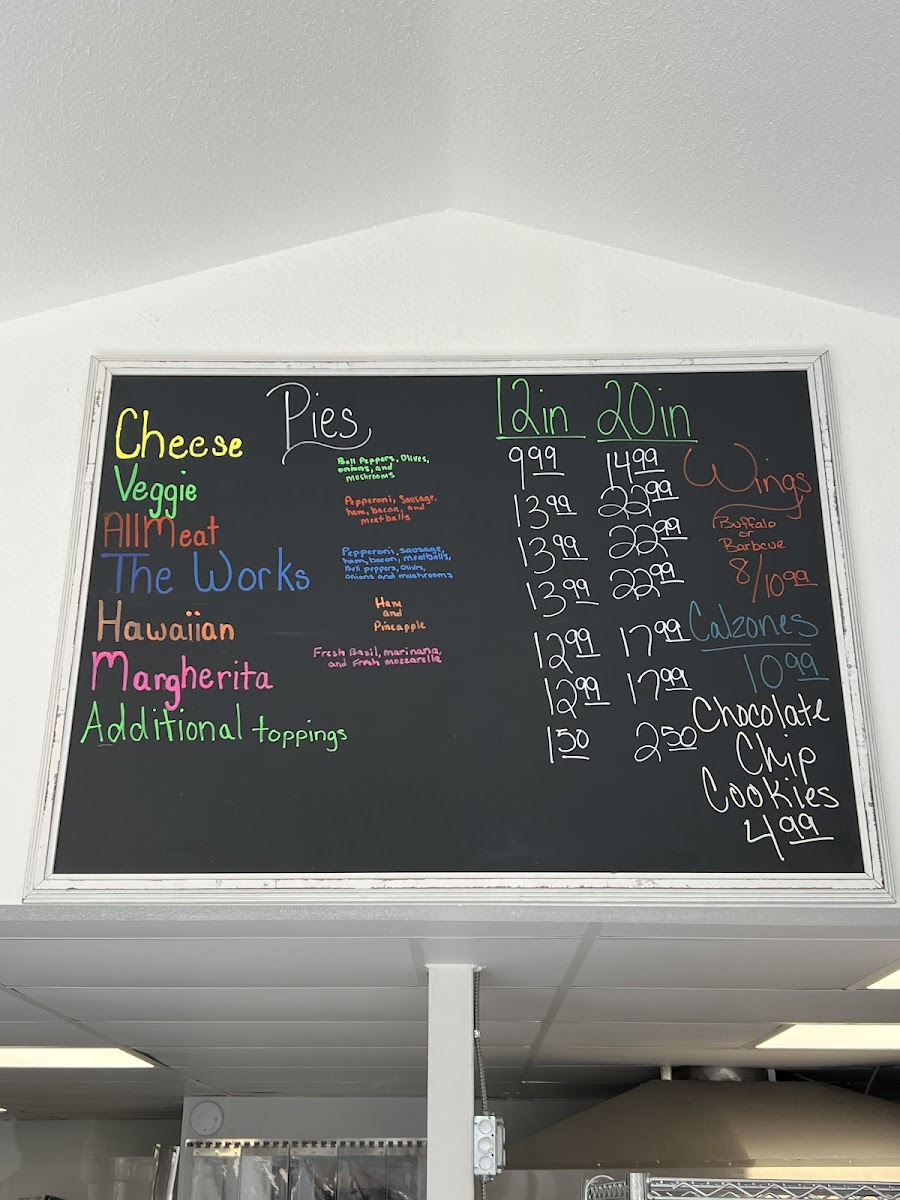 Pies
12in 20in
Cheese
9.99 14.99
Veggie
Bell Peppers, Olives,
onions, and
mushrooms
13.99 22.99
All Meat
Pepperoni, Sausage,
ham, bacon, and
meatballs
13.99 22.99
The Works
Pepperoni, sausage,
ham, bacon, meatballs,
Bell peppers, Olives,
onions and mushrooms
13.99 22.99
Hawaiian
Ham
and
Pineapple
12.99 17.99
Margherita
Fresh Basil, marinara,
and Fresh mozzarella
12.99 17.99
Additional toppings
1.50 2.50
Wings
Buffalo
or
Barbecue
8/10.99
Calzones
10.99
Chocolate
Chip
Cookies
4.99